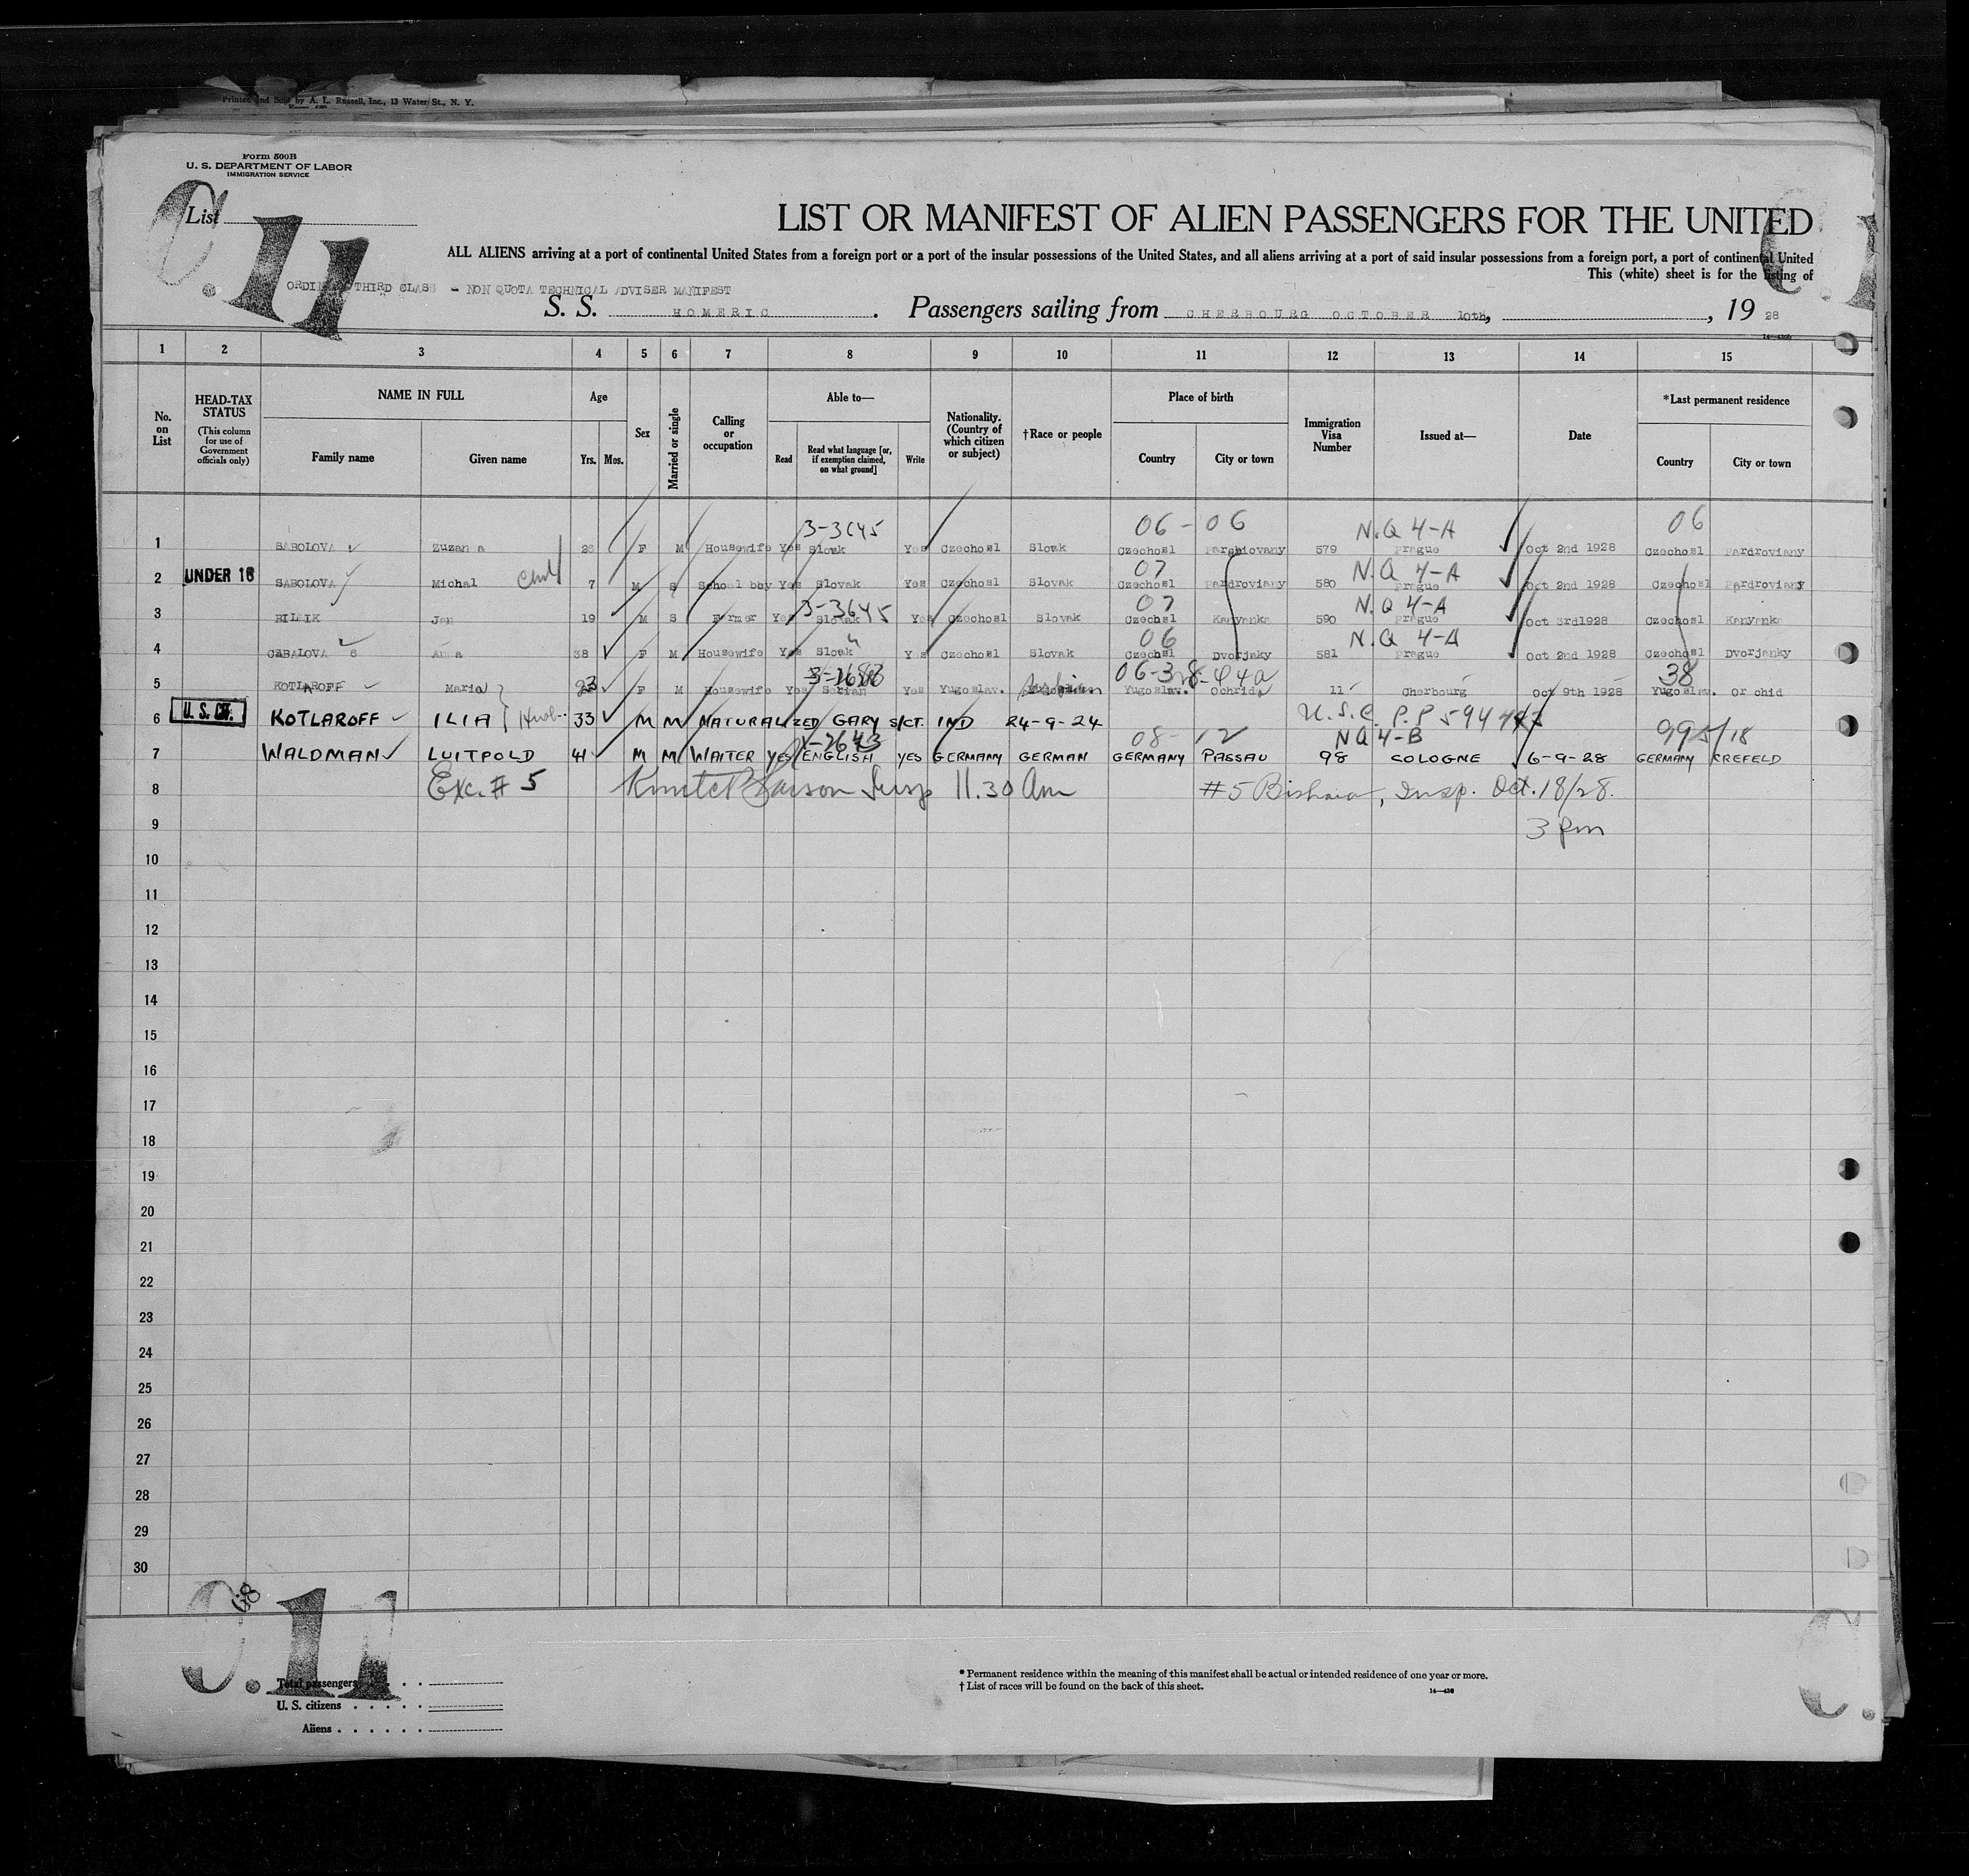 Printed and Sold by A. L. Russell, Inc., 13 Water St., N. Y.
Form 500B
U. S. DEPARTMENT OF LABOR
IMMIGRATION SERVICE
List
C.11
LIST OR MANIFEST OF ALIEN PASSENGERS FOR THE UNITED
ALL ALIENS arriving at a port of continental United States from a foreign port or a port of the insular possessions of the United States, and all aliens arriving at a port of said insular possessions from a foreign port, a port of continental United
This (white) sheet is for the listing of
THIRD CLASS - NON QUOTA TECHNICAL ADVISER MANIFEST
S. S. HOMERIC. Passengers sailing from CHERBOURG OCTOBER 10th, , 19 28
1 2 3 4 5 6 7 8 9 10 11 12 13 14 15
No. on List
HEAD-TAX STATUS (This column for use of Government officials only)
NAME IN FULL
Family name Given name
Age
Yrs. Mos.
Sex
Married or single
Calling or occupation
Able to—
Read Read what language [or, if exemption claimed, on what ground] Write
Nationality. (Country of which citizen or subject)
†Race or people
Place of birth
Country City or town
Immigration Visa Number
Issued at—
Date
*Last permanent residence
Country City or town
3-3645 06-06 N.Q 4-A 06
1 SABOLOVA Zuzana 28 F M Housewife Yes Slovak Yes Czechosl Slovak Czechosl 579 Prague Oct 2nd 1928 Czechosl Pardroviany
07 N.Q 4-A
2 UNDER 16 SABOLOVA Michal Child 7 M S School boy Yes Slovak Yes Czechosl Slovak Czechosl Pardroviany 580 Prague Oct 2nd 1928 Czechosl Pardroviany
3-3645 07 N.Q 4-A
3 BILLIK Jan 19 M S Farmer Yes Slovak Yes Czechosl Slovak Czechosl Kanyanka 590 Prague Oct 3rd1928 Czechosl Kanyanka
06 N.Q 4-A
4 Anna 38 F M Housewife Yes Slovak Yes Czechosl Slovak Czechosl Dvorjaky 581 Prague Oct 2nd 1928 Czechosl Dvorjanky
38
5 KOTLAROFF Maria 23 F M Housewife Yes Yes Yugoslav. Yugoslav. Ochrida 11 Cherbourg Oct 9th 1928 Yugoslav. Or chid
U.S.C. P.P
6 U.S. CIT. KOTLAROFF ILIA Husb. 33 M M NATURALIZED GARY S/CT. IND 24-9-24
X-2643 08-12 NQ 4-B 995/18
7 WALDMAN LUITPOLD 41 M M WAITER YES ENGLISH YES GERMANY GERMAN GERMANY PASSAU 98 COLOGNE 6-9-28 GERMANY CREFELD
8 Exc. # 5 Insp 11.30 Am #5 Insp. Oct. 18/28.
9 3 pm
10
11
12
13
14
15
16
17
18
19
20
21
22
23
24
25
26
27
28
29
30
C.11
Total passengers
U. S. citizens
Aliens
* Permanent residence within the meaning of this manifest shall be actual or intended residence of one year or more.
† List of races will be found on the back of this sheet.